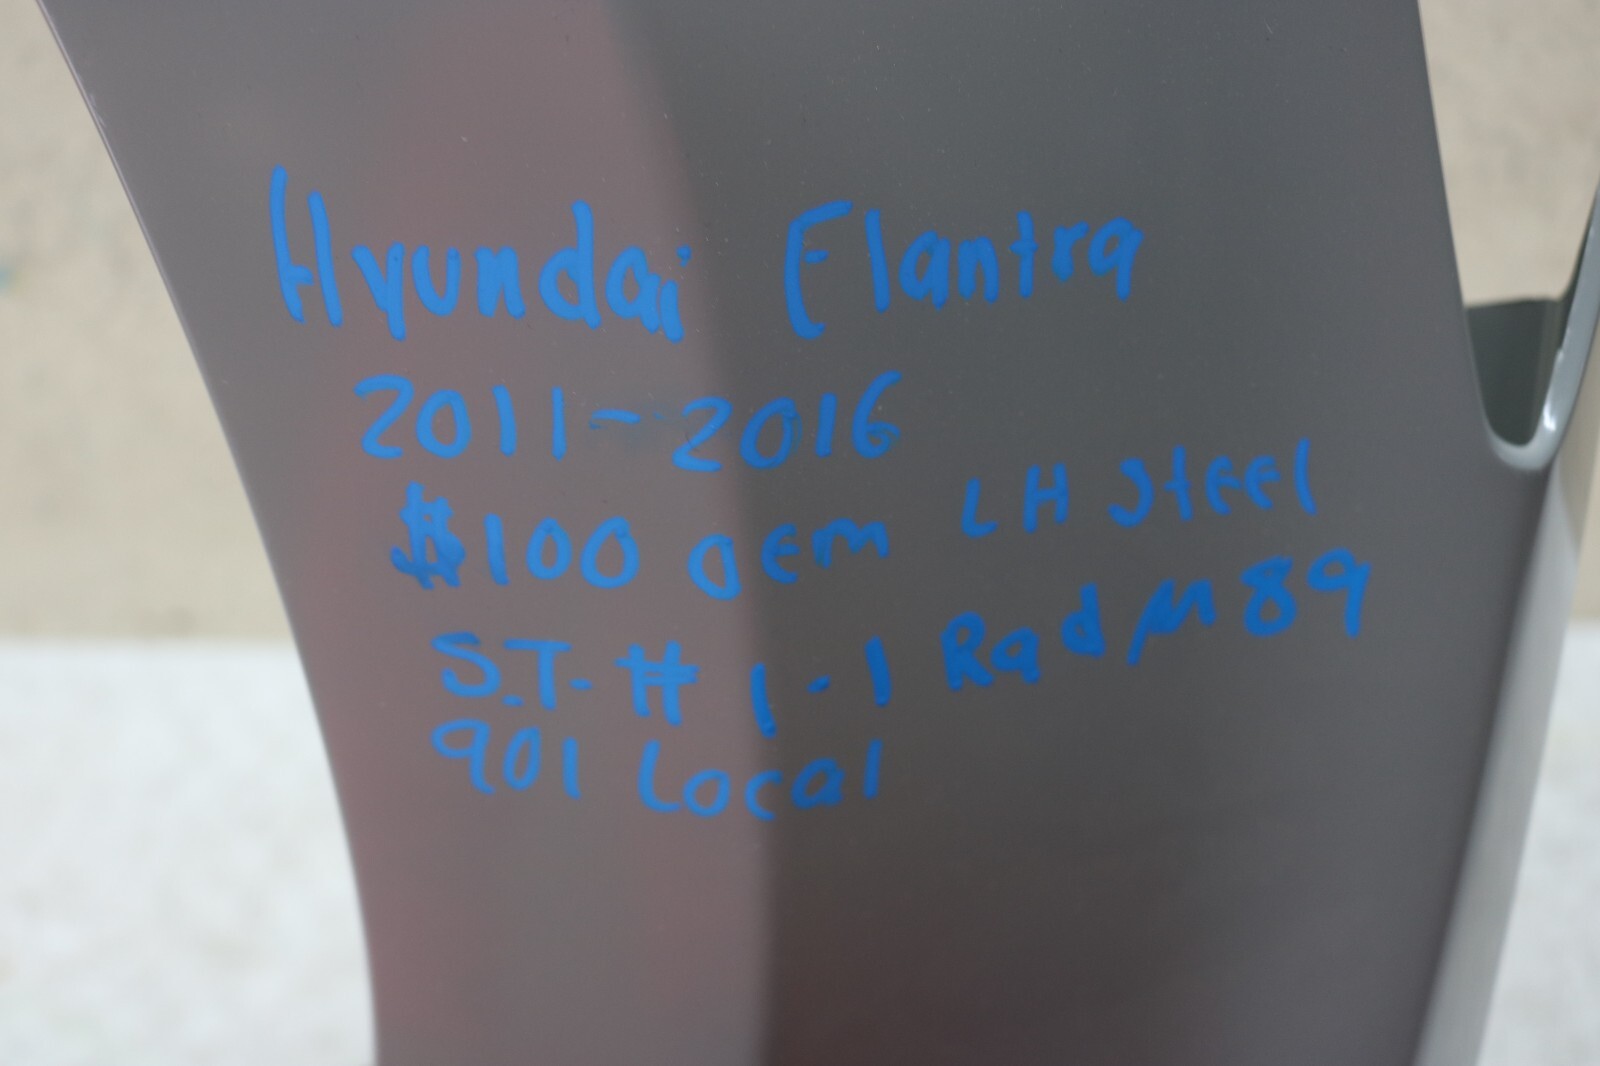 Hyundai Elantra
2011-2016
$100 OEM LH Steel
S.T-# 1-1 Rad M89
901 Local